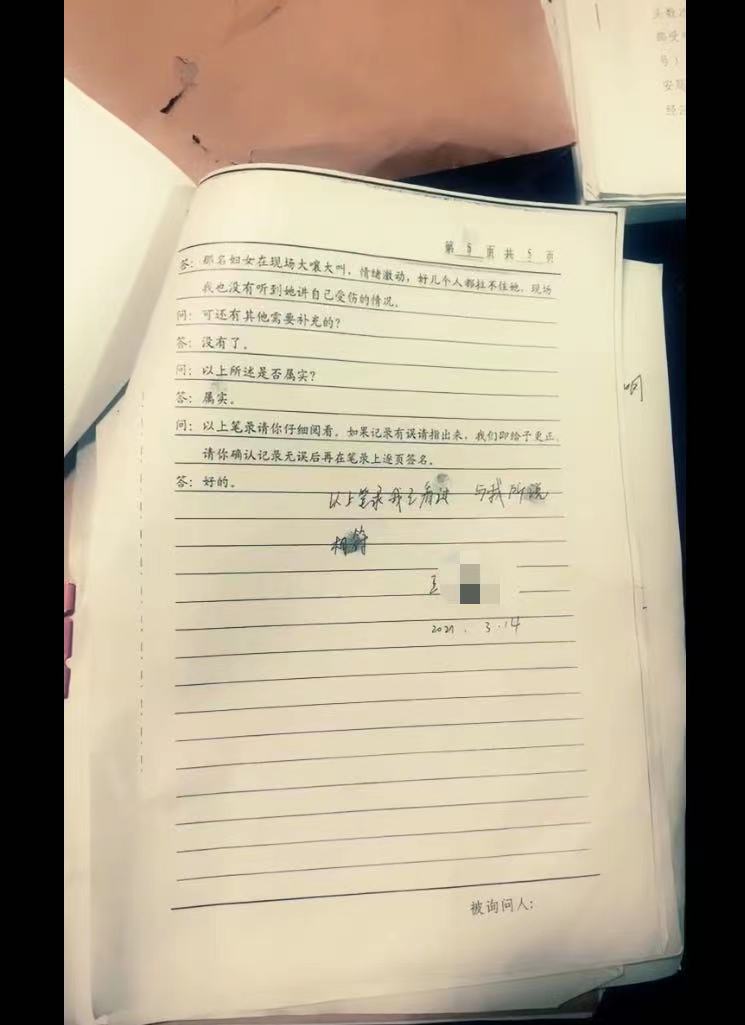 第 5 页 共 5 页
答：那名妇女在现场大嚷大叫，情绪激动，好几个人都拉不住她，现场
我也没有听到她讲自己受伤的情况。
问：可还有其他需要补充的？
答：没有了。
问：以上所述是否属实？
答：属实。
问：以上笔录请你仔细阅看。如果记录有误请指出来，我们即给予更正。
请你确认记录无误后再在笔录上逐页签名。
答：好的。
以上笔录我已看过 与我所说
相符
王
2021.3.14
被询问人：
头数
号）
经